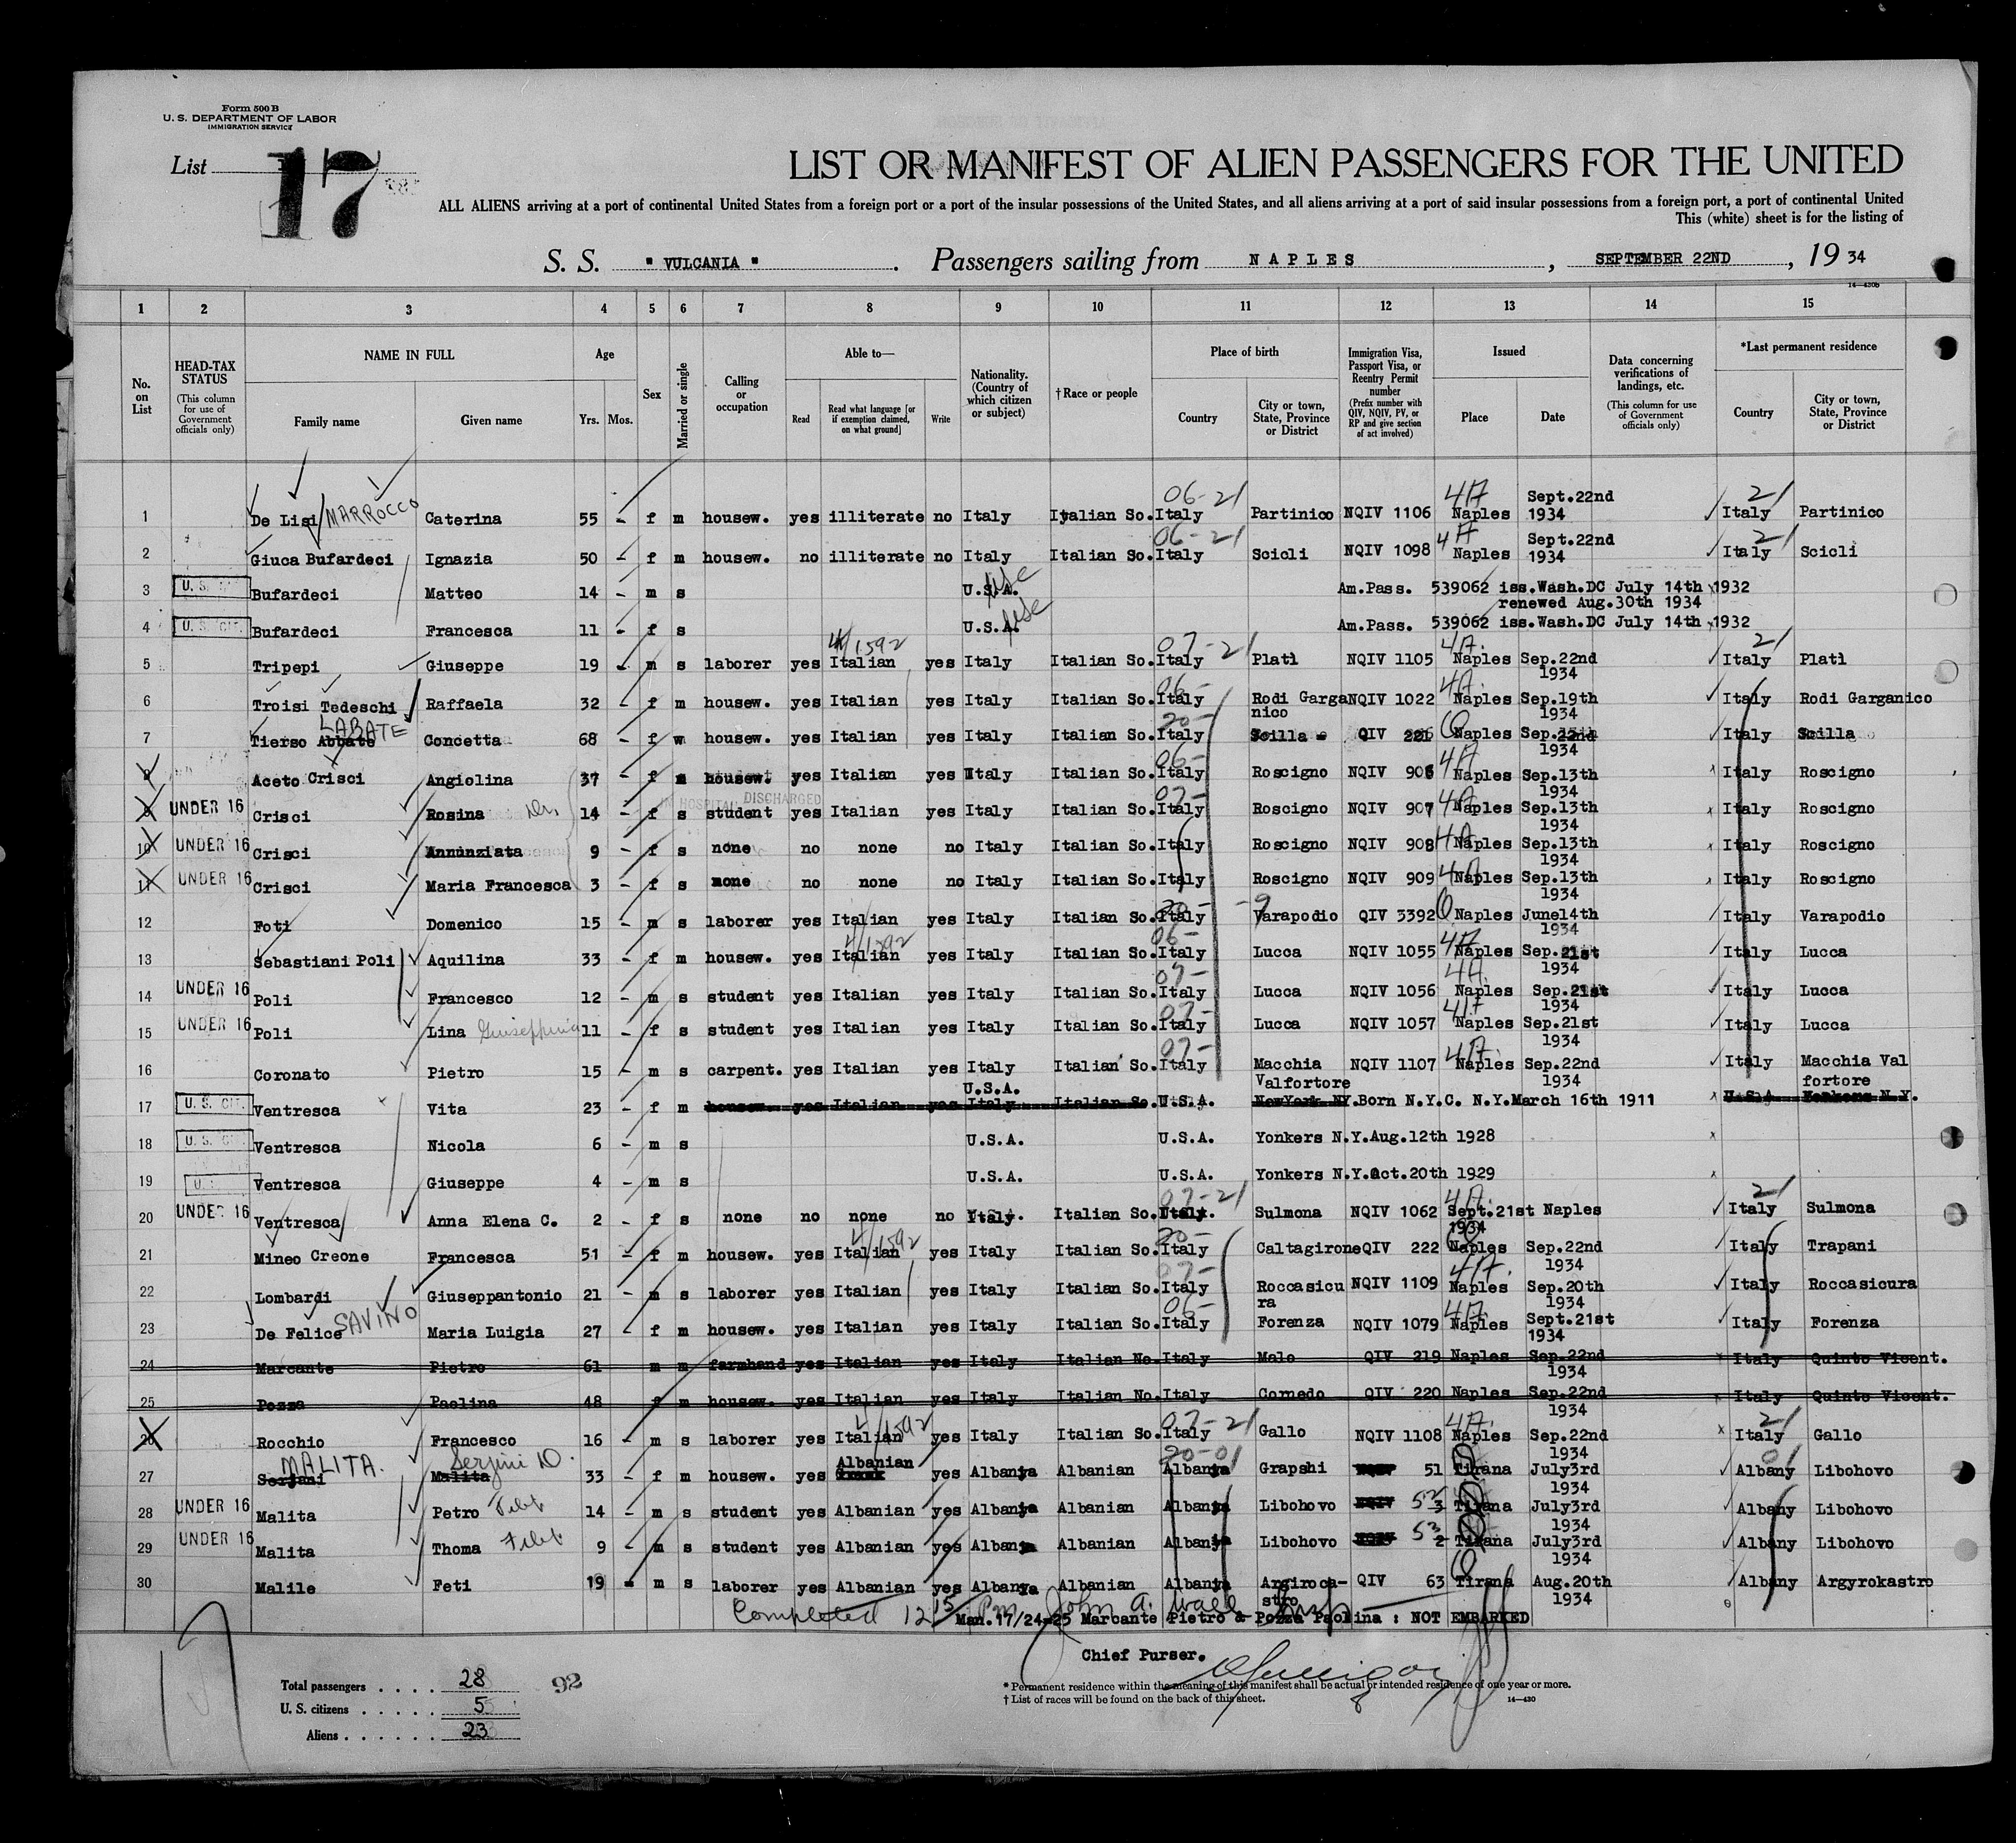 Form 500 B
U. S. DEPARTMENT OF LABOR
IMMIGRATION SERVICE
List 17
LIST OR MANIFEST OF ALIEN PASSENGERS FOR THE UNITED
ALL ALIENS arriving at a port of continental United States from a foreign port or a port of the insular possessions of the United States, and all aliens arriving at a port of said insular possessions from a foreign port, a port of continental United
This (white) sheet is for the listing of
S. S. " VULCANIA " . Passengers sailing from N A P L E S , SEPTEMBER 22ND , 19 34
1 2 3 4 5 6 7 8 9 10 11 12 13 14 15
No. on List
HEAD-TAX STATUS (This column for use of Government officials only)
NAME IN FULL Family name Given name
Age Yrs. Mos.
Sex
Married or single
Calling or occupation
Able to— Read Read what language [or if exemption claimed, on what ground] Write
Nationality. (Country of which citizen or subject)
† Race or people
Place of birth Country City or town, State, Province or District
Immigration Visa, Passport Visa, or Reentry Permit number (Prefix number with QIV, NQIV, PV, or RP and give section of act involved)
Issued Place Date
Data concerning verifications of landings, etc. (This column for use of Government officials only)
*Last permanent residence Country City or town, State, Province or District
1 De Lisi MARROCCO Caterina 55 - f m housew. yes illiterate no Italy Italian So. Italy 06-21 Partinico NQIV 1106 4A Naples Sept.22nd 1934 Italy 21 Partinico
2 Giuca Bufardeci Ignazia 50 - f m housew. no illiterate no Italy Italian So. Italy 06-21 Scicli NQIV 1098 4A Naples Sept.22nd 1934 Italy 21 Scicli
3 U. S. Bufardeci Matteo 14 - m s U.S.A. usc Am.Pass. 539062 iss.Wash.DC July 14th 1932
renewed Aug.30th 1934
4 U. S. CIT. Bufardeci Francesca 11 - f s U.S.A. usc Am.Pass. 539062 iss.Wash.DC July 14th 1932
5 Tripepi Giuseppe 19 - m s laborer yes Italian 4/1592 yes Italy Italian So. Italy 07-21 Platì NQIV 1105 4A Naples Sep.22nd 1934 Italy 21 Platì
6 Troisi Tedeschi Raffaela 32 - f m housew. yes Italian yes Italy Italian So. Italy 06- Rodi Garganico NQIV 1022 4A Naples Sep.19th 1934 Italy Rodi Garganico
7 Tierso Abbate LABATE Concetta 68 - f w housew. yes Italian yes Italy Italian So. Italy 20- Scilla QIV 221 Q Naples Sep.22nd 1934 Italy Scilla
8 Aceto Crisci Angiolina 37 - f m housew. yes Italian yes Italy Italian So. Italy 06- Roscigno NQIV 906 4A Naples Sep.13th 1934 Italy Roscigno
IN HOSPITAL DISCHARGED
9 UNDER 16 Crisci Rosina 14 - f s student yes Italian yes Italy Italian So. Italy 07- Roscigno NQIV 907 4A Naples Sep.13th 1934 Italy Roscigno
10 UNDER 16 Crisci Annunziata 9 - f s none no none no Italy Italian So. Italy Roscigno NQIV 908 4A Naples Sep.13th 1934 Italy Roscigno
11 UNDER 16 Crisci Maria Francesca 3 - f s none no none no Italy Italian So. Italy Roscigno NQIV 909 4A Naples Sep.13th 1934 Italy Roscigno
12 Foti Domenico 15 - m s laborer yes Italian yes Italy Italian So. Italy 20- -9 Varapodio QIV 3392 Q Naples June14th 1934 Italy Varapodio
13 Sebastiani Poli Aquilina 33 - f m housew. yes Italian 4/1592 yes Italy Italian So. Italy 06- Lucca NQIV 1055 4A Naples Sep.21st 1934 Italy Lucca
14 UNDER 16 Poli Francesco 12 - m s student yes Italian yes Italy Italian So. Italy 07- Lucca NQIV 1056 4A Naples Sep.21st 1934 Italy Lucca
15 UNDER 16 Poli Lina Giuseppina 11 - f s student yes Italian yes Italy Italian So. Italy 07- Lucca NQIV 1057 4A Naples Sep.21st 1934 Italy Lucca
16 Coronato Pietro 15 - m s carpent. yes Italian yes Italy Italian So. Italy 07- Macchia Valfortore NQIV 1107 4A Naples Sep.22nd 1934 Italy Macchia Val fortore
17 U. S. CIT. Ventresca Vita 23 - f m housew. yes Italian yes Italy U.S.A. Italian So. U.S.A. NewYork NY. Born N.Y.C. N.Y.March 16th 1911 U.S.A. Yonkers N.Y.
18 U. S. CIT. Ventresca Nicola 6 - m s U.S.A. U.S.A. Yonkers N.Y.Aug.12th 1928
19 U. Ventresca Giuseppe 4 - m s U.S.A. U.S.A. Yonkers N.Y.Oct.20th 1929
20 UNDER 16 Ventresca Anna Elena C. 2 - f s none no none no Italy Italian So. Italy 07-21 Sulmona NQIV 1062 4A. Sept.21st Naples 1934 Italy 21 Sulmona
21 Mineo Creone Francesca 51 - f m housew. yes Italian 4/1592 yes Italy Italian So. Italy 20- Caltagirone QIV 222 Q Naples Sep.22nd 1934 Italy Trapani
22 Lombardi Giuseppantonio 21 - m s laborer yes Italian yes Italy Italian So. Italy 07- Roccasicura NQIV 1109 4A. Naples Sep.20th 1934 Italy Roccasicura
23 De Felice SAVINO Maria Luigia 27 - f m housew. yes Italian yes Italy Italian So. Italy 06- Forenza NQIV 1079 4A. Naples Sept.21st 1934 Italy Forenza
24 Marcante Pietro 61 m m farmhand yes Italian yes Italy Italian No. Italy Malo QIV 219 Naples Sep.22nd 1934 Italy Quinto Vicent.
25 Pozza Paolina 48 f m housew. yes Italian yes Italy Italian No. Italy Cornedo QIV 220 Naples Sep.22nd 1934 Italy Quinto Vicent.
26 Rocchio Francesco 16 - m s laborer yes Italian 4/1592 yes Italy Italian So. Italy 07-21 Gallo NQIV 1108 4A. Naples Sep.22nd 1934 Italy 21 Gallo
27 Serjani MALITA. Malita 33 - f m housew. yes Albanian Greek yes Albanya Albanian Albanya 20-01 Grapshi NQIV 51 Tirana July3rd 1934 Albany 01 Libohovo
28 UNDER 16 Malita Petro 14 - m s student yes Albanian yes Albanya Albanian Albanya Libohovo NQIV 52 3 Tirana July3rd 1934 Albany Libohovo
29 UNDER 16 Malita Thoma 9 - m s student yes Albanian yes Albanya Albanian Albanya Libohovo NQIV 53 2 Tirana July3rd 1934 Albany Libohovo
30 Malile Feti 19 - m s laborer yes Albanian yes Albanya Albanian Albanya Argiroca-stro QIV 63 Q Tirana Aug.20th 1934 Albany Argyrokastro
Completed 12 15 Pm John A. Wall Insp
Man.17/24-25 Marcante Pietro & Pozza Paolina : NOT EMBARKED
Chief Purser.
Total passengers . . . . 28 92
U. S. citizens . . . . . 5
Aliens . . . . . . 23
* Permanent residence within the meaning of this manifest shall be actual or intended residence of one year or more.
† List of races will be found on the back of this sheet. 14—430